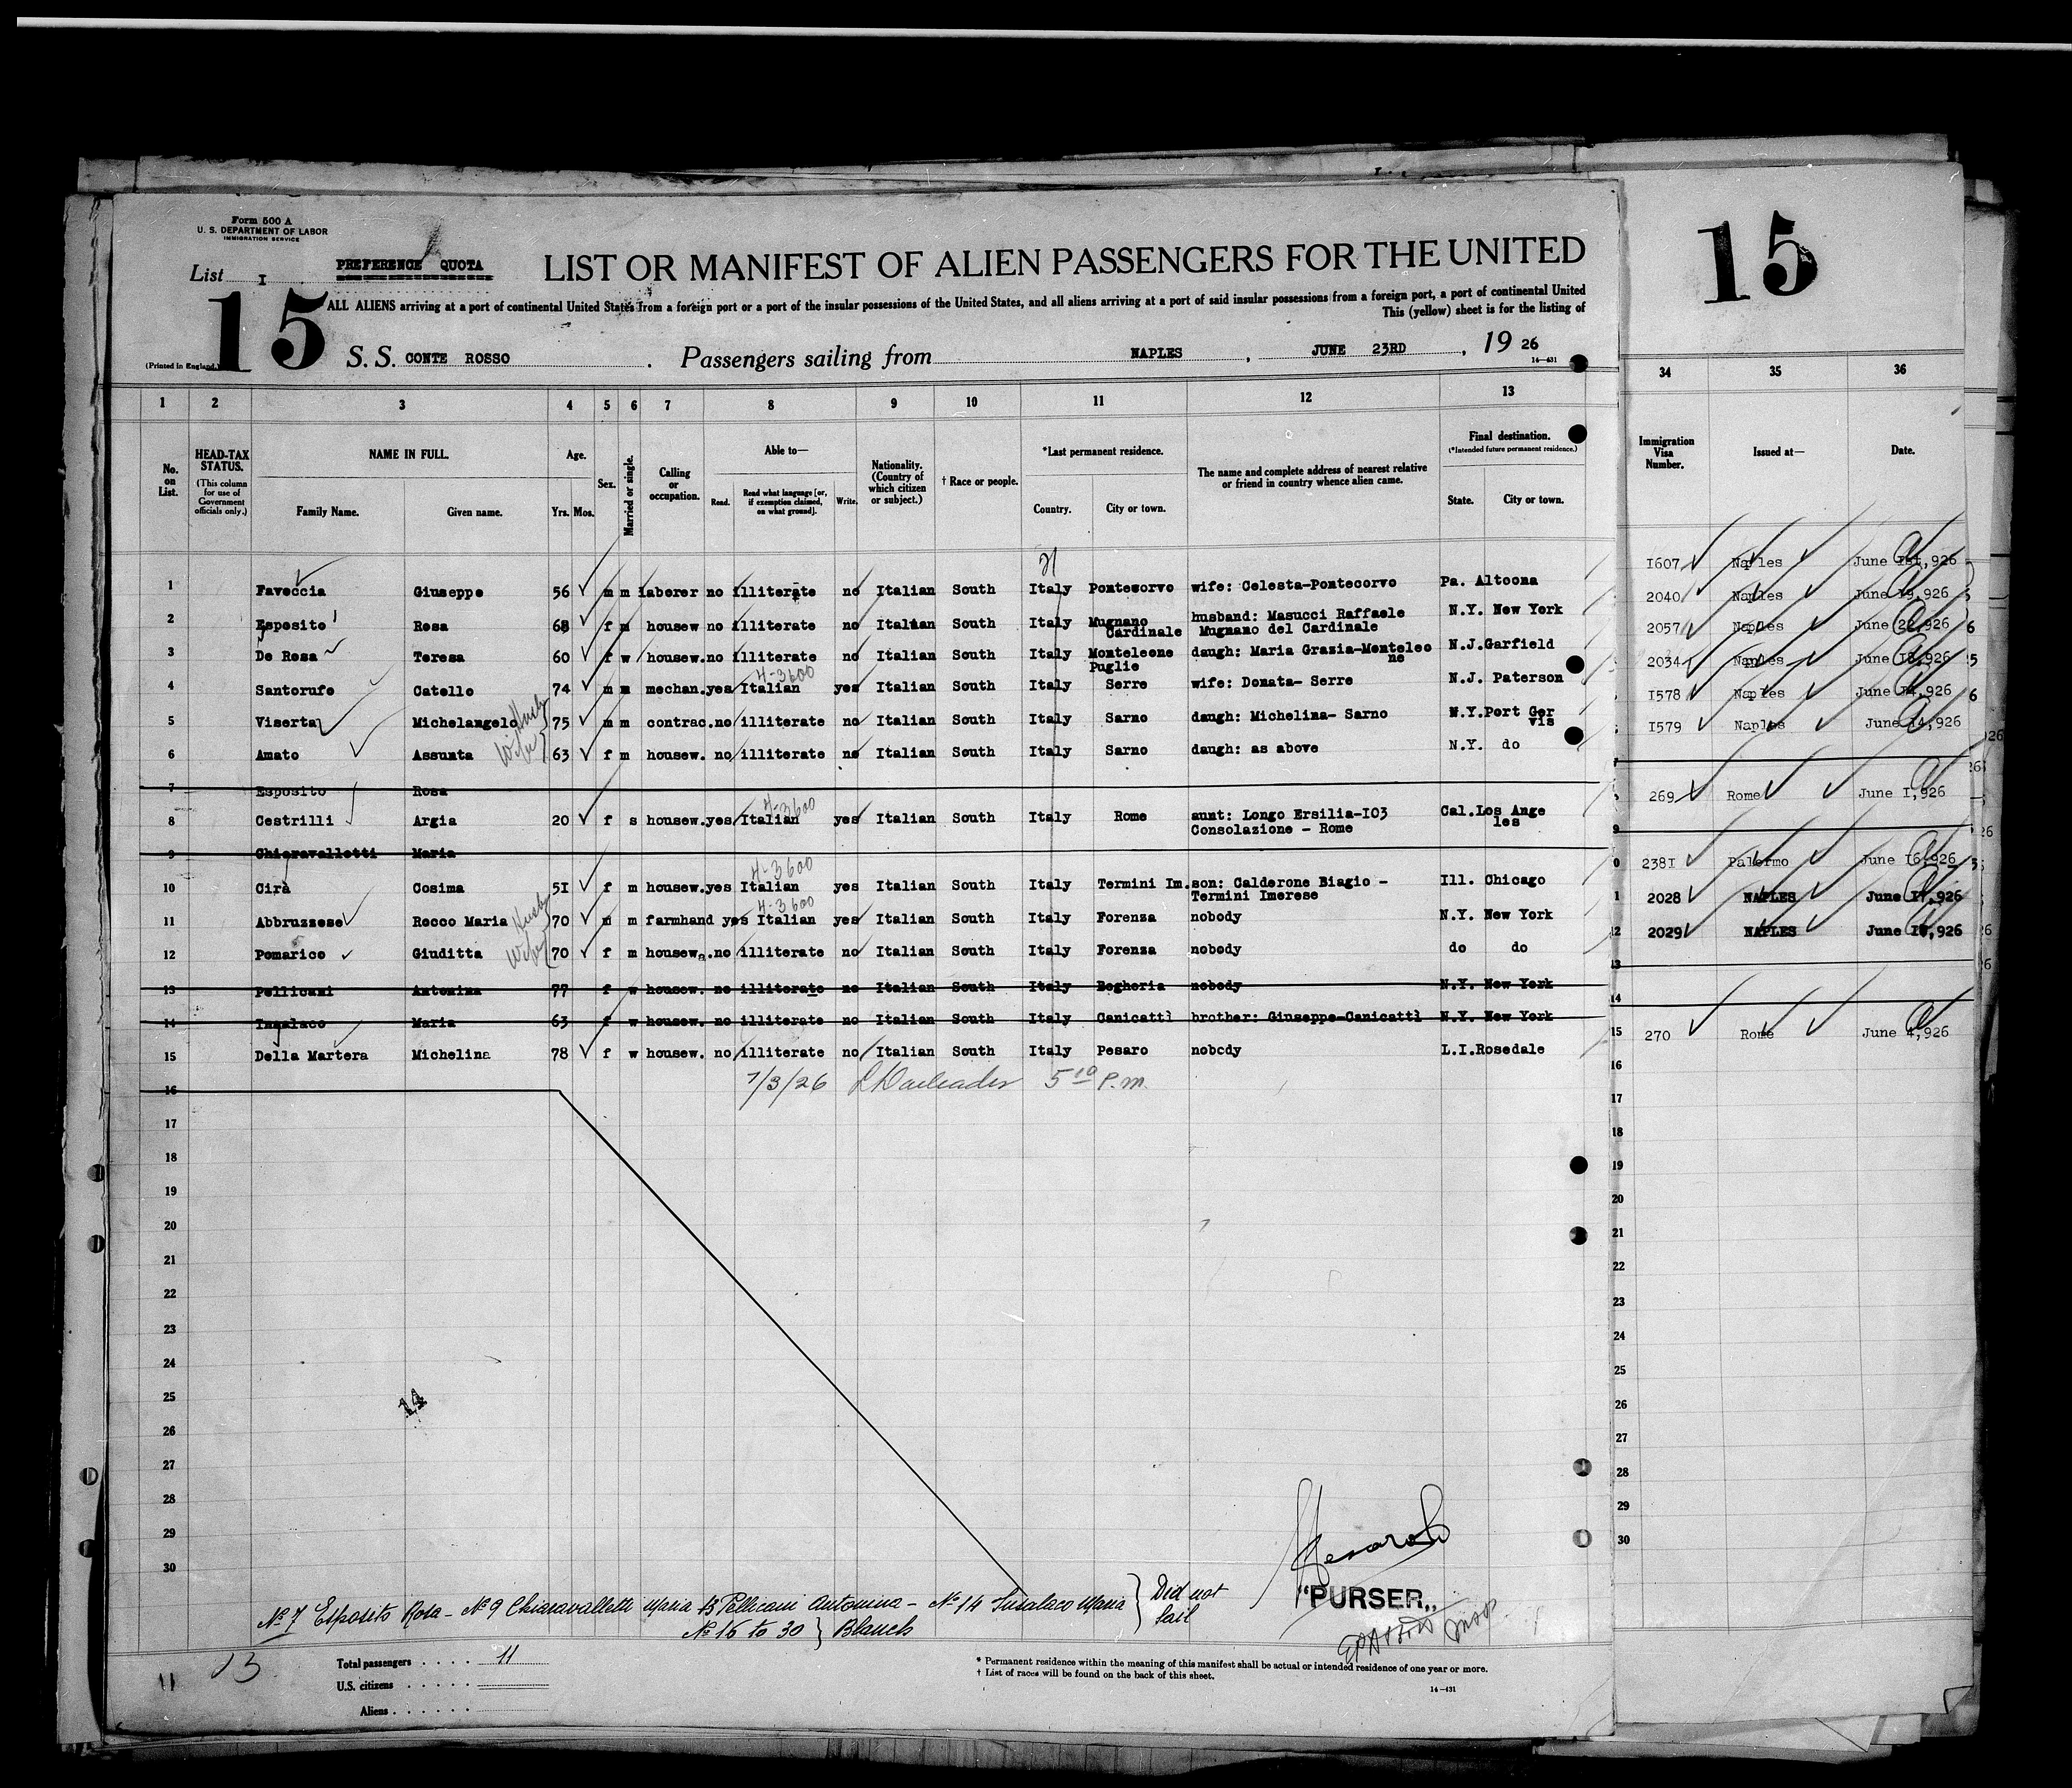 Form 500 A
U. S. DEPARTMENT OF LABOR
IMMIGRATION SERVICE
List I PREFERENCE QUOTA
LIST OR MANIFEST OF ALIEN PASSENGERS FOR THE UNITED
15
ALL ALIENS arriving at a port of continental United States from a foreign port or a port of the insular possessions of the United States, and all aliens arriving at a port of said insular possessions from a foreign port, a port of continental United
This (yellow) sheet is for the listing of
(Printed in England.)
S. S. CONTE ROSSO . Passengers sailing from NAPLES , JUNE 23RD , 19 26
14—431
15
1 2 3 4 5 6 7 8 9 10 11 12 13 34 35 36
No. on List.
HEAD-TAX STATUS.
(This column for use of Government officials only.)
NAME IN FULL.
Family Name. Given name.
Age.
Yrs. Mos.
Sex.
Married or single.
Calling or occupation.
Able to—
Read. Read what language [or, if exemption claimed, on what ground]. Write.
Nationality. (Country of which citizen or subject.)
† Race or people.
*Last permanent residence.
Country. City or town.
The name and complete address of nearest relative or friend in country whence alien came.
Final destination.
(*Intended future permanent residence.)
State. City or town.
Immigration Visa Number.
Issued at—
Date.
1 Faveccia Giuseppe 56 m m laborer no illiterate no Italian South Italy Pontecorvo wife: Celesta-Pontecorvo Pa. Altoona I607 Naples June 1st,926
2 Esposito Rosa 68 f m housew no illiterate no Italian South Italy Mugnano Cardinale husband: Masucci Raffaele Mugnano del Cardinale N.Y. New York 2040 Naples June 19,926
3 De Rosa Teresa 60 f w housew. no illiterate no Italian South Italy Monteleone Puglie daugh: Maria Grazia-Monteleo ne N.J. Garfield 2057 Naples June 22,926
4-3600
4 Santorufo Catello 74 m m mechan. yes Italian yes Italian South Italy Serre wife: Donata- Serre N.J. Paterson 2034 Naples June 18,926
5 Viserta Michelangelo 75 m m contrac. no illiterate no Italian South Italy Sarno daugh: Michelina- Sarno N.Y. Port Ger vis I578 Naples June 14,926
6 Amato Assunta 63 f m housew. no illiterate no Italian South Italy Sarno daugh: as above N.Y. do I579 Naples June 14,926
7 Esposito Rosa
4-3600
8 Cestrilli Argia 20 f s housew. yes Italian yes Italian South Italy Rome aunt: Longo Ersilia-I03 Consolazione - Rome Cal. Los Ange les 269 Rome June I,926
9 Chiaravalletti Maria
4-3600
10 Cirà Cosima 5I f m housew. yes Italian yes Italian South Italy Termini Im. son: Calderone Biagio - Termini Imerese Ill. Chicago 238I Palermo June 16,926
4-3600
11 Abbruzzese Rocco Maria 70 m m farmhand yes Italian yes Italian South Italy Forenza nobody N.Y. New York 2028 NAPLES June 17,926
12 Pomarico Giuditta 70 f m housew. no illiterate no Italian South Italy Forenza nobody do do 2029 NAPLES June 17,926
13 Pellicani Antonina 77 f w housew. no illiterate no Italian South Italy Begheria nobody N.Y. New York
14 Insalaco Maria 63 f w housew. no illiterate no Italian South Italy Canicattì brother: Giuseppe-Canicattì N.Y. New York
15 Della Martera Michelina 78 f w housew. no illiterate no Italian South Italy Pesaro nobody L.I. Rosedale 270 Rome June 4,926
7/3/26 5 10 P.M.
16
17
18
19
20
21
22
23
24
25
14
26
27
28
29
30
Nº 7 Esposito Rosa - Nº 9 Chiaravalletti Maria 13 Pellicani Antonina - Nº 14 Insalaco Maria } Did not sail
Nº 16 to 30 } Blanch
"PURSER"
11 13
Total passengers 11
U.S. citizens
Aliens
* Permanent residence within the meaning of this manifest shall be actual or intended residence of one year or more.
† List of races will be found on the back of this sheet.
14—431